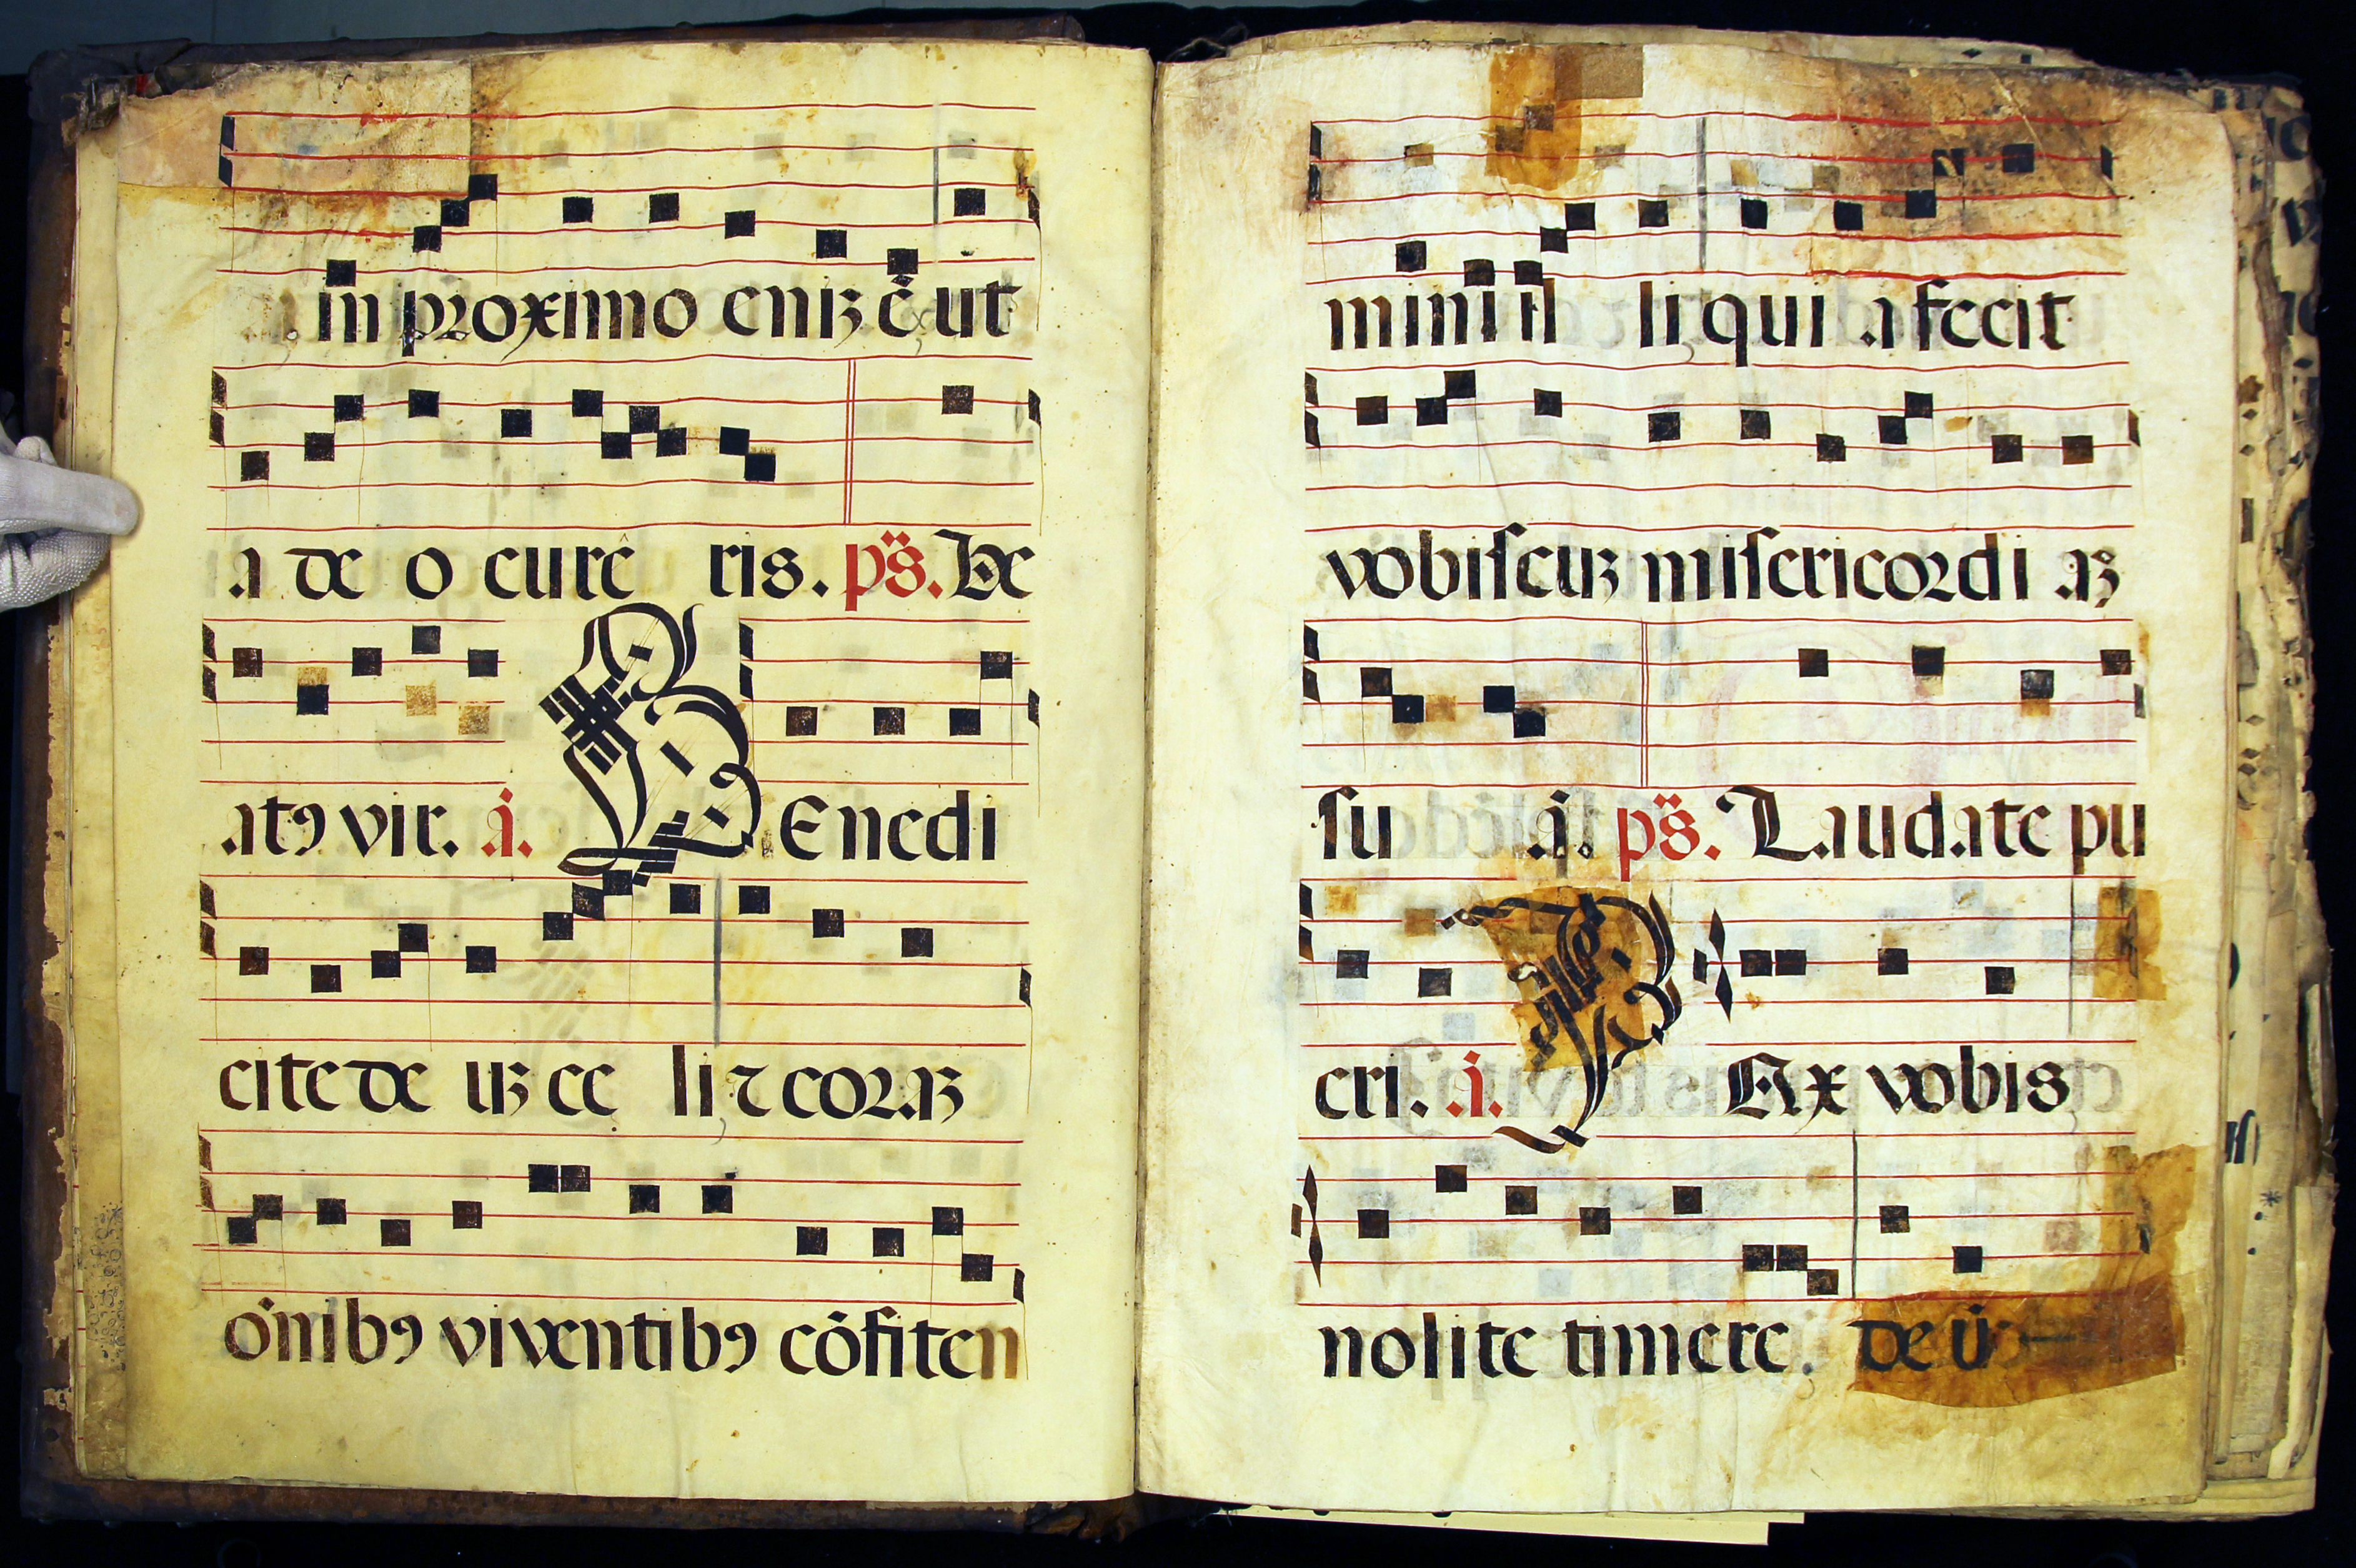 in proximo eniꝫ ē ut
a de o curē ris. ps̈. Be
atꝯ vir. a̍. B Enedi
cite de uꝫ ce li ⁊ coraꝫ
ōnibꝯ viventibꝯ cōfiten
mini il li qui a fecit
vobiscuꝫ misericordi aꝫ
su ā. ps̈. Laudate pu
eri. a̍. P Ax vobis
nolite timere. de ū